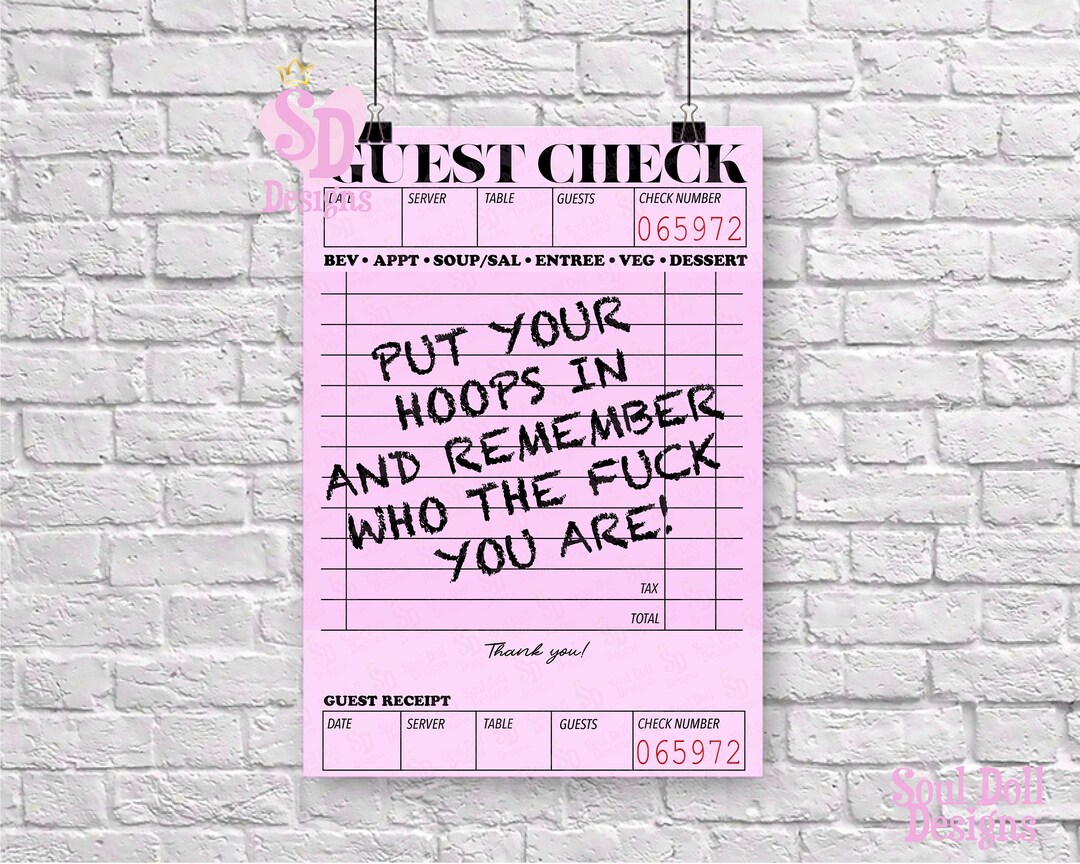 SD
Designs
GUEST CHECK
DATE SERVER TABLE GUESTS CHECK NUMBER
065972
BEV • APPT • SOUP/SAL • ENTREE • VEG • DESSERT
PUT YOUR
HOOPS IN
AND REMEMBER
WHO THE FUCK
YOU ARE!
TAX
TOTAL
Thank you!
GUEST RECEIPT
DATE SERVER TABLE GUESTS CHECK NUMBER
065972
Soul Doll
Designs